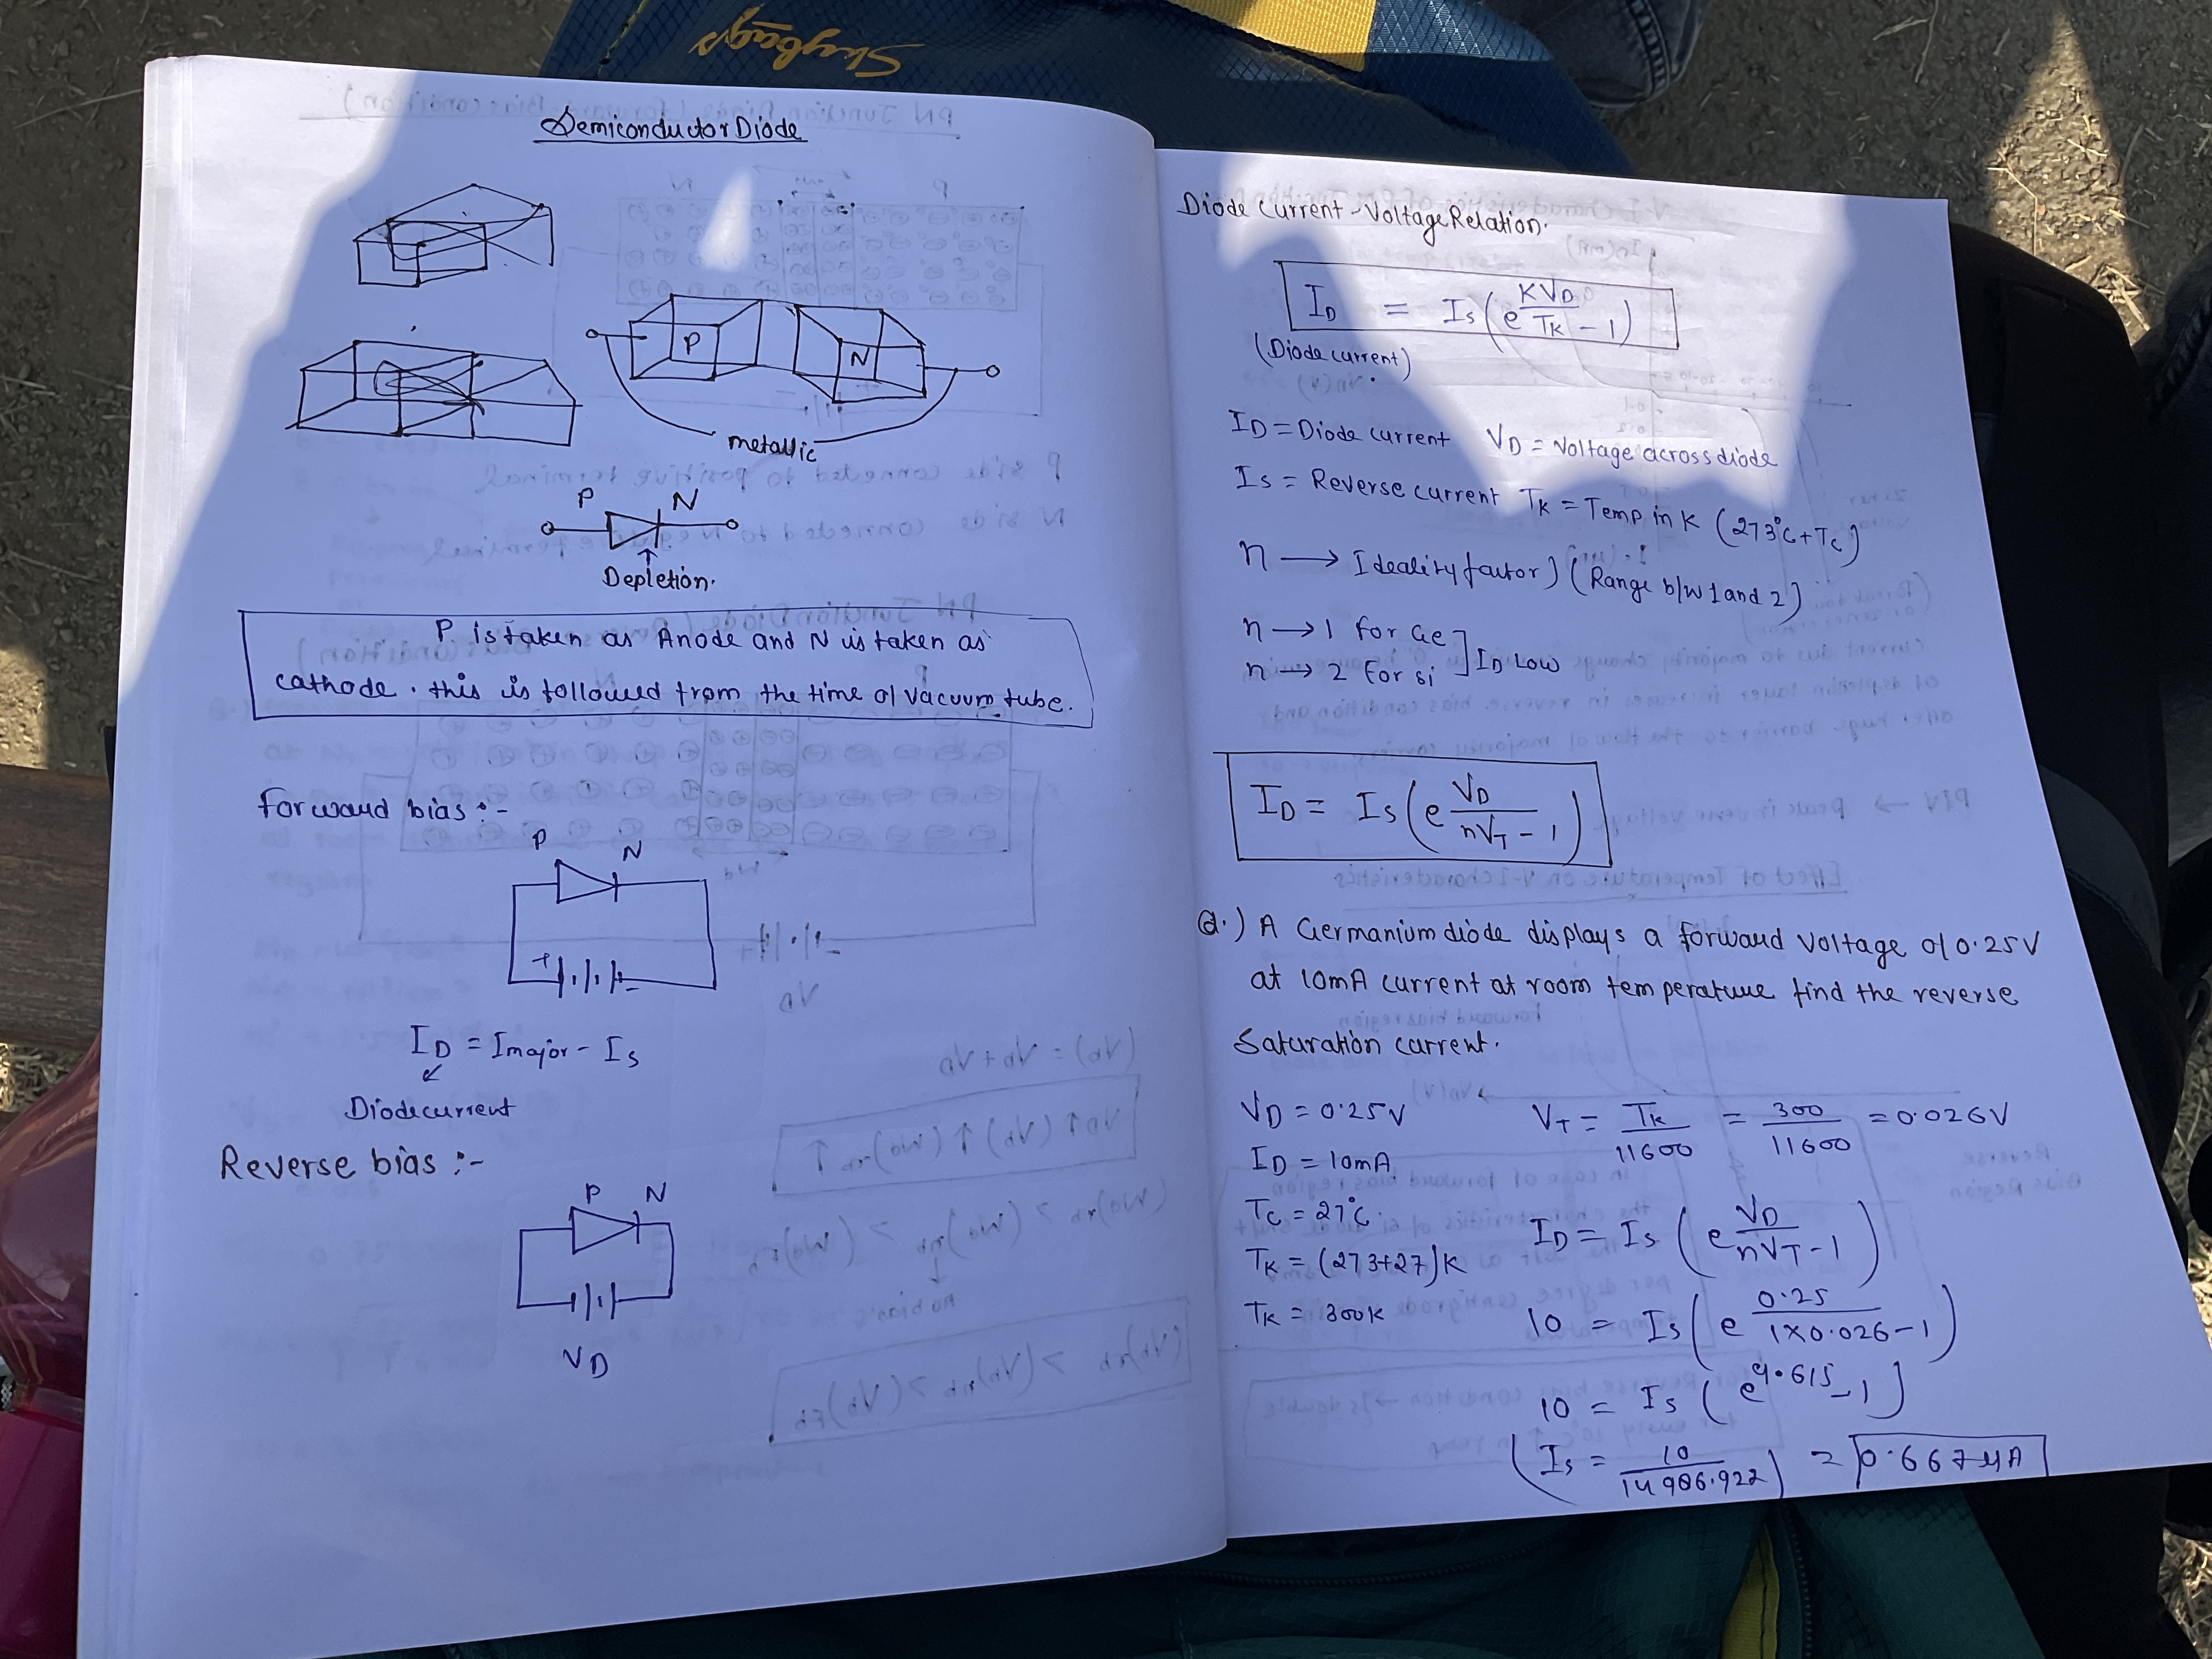 Skybags
Semiconductor Diode
P
N
metallic
P N
Depletion.
P is taken as Anode and N is taken as
cathode. this is followed from the time of vacuum tube.
forward bias :-
P
N
+ -
ID = Imajor - Is
Diode current
Reverse bias :-
P N
VD
Diode Current - Voltage Relation.
ID = Is (e KVD/TK - 1)
(Diode current)
ID = Diode current VD = Voltage across diode
Is = Reverse current TK = Temp in K (273°C + Tc)
η → Ideality factor) (Range b/w 1 and 2)
η → 1 for Ge
η → 2 for si ] ID Low
ID = Is (e VD/ηVT - 1)
Q.) A Germanium diode displays a forward voltage of 0.25V
at 10mA current at room temperature find the reverse
Saturation current.
VD = 0.25V VT = TK/11600 = 300/11600 = 0.026V
ID = 10mA
Tc = 27°C.
ID = Is (e VD/ηVT - 1)
TK = (273+27)K
TK = 300K
10 = Is (e 0.25/1×0.026 - 1)
10 = Is (e^9.615 - 1)
(Is = 10/14986.922) = 0.667μA